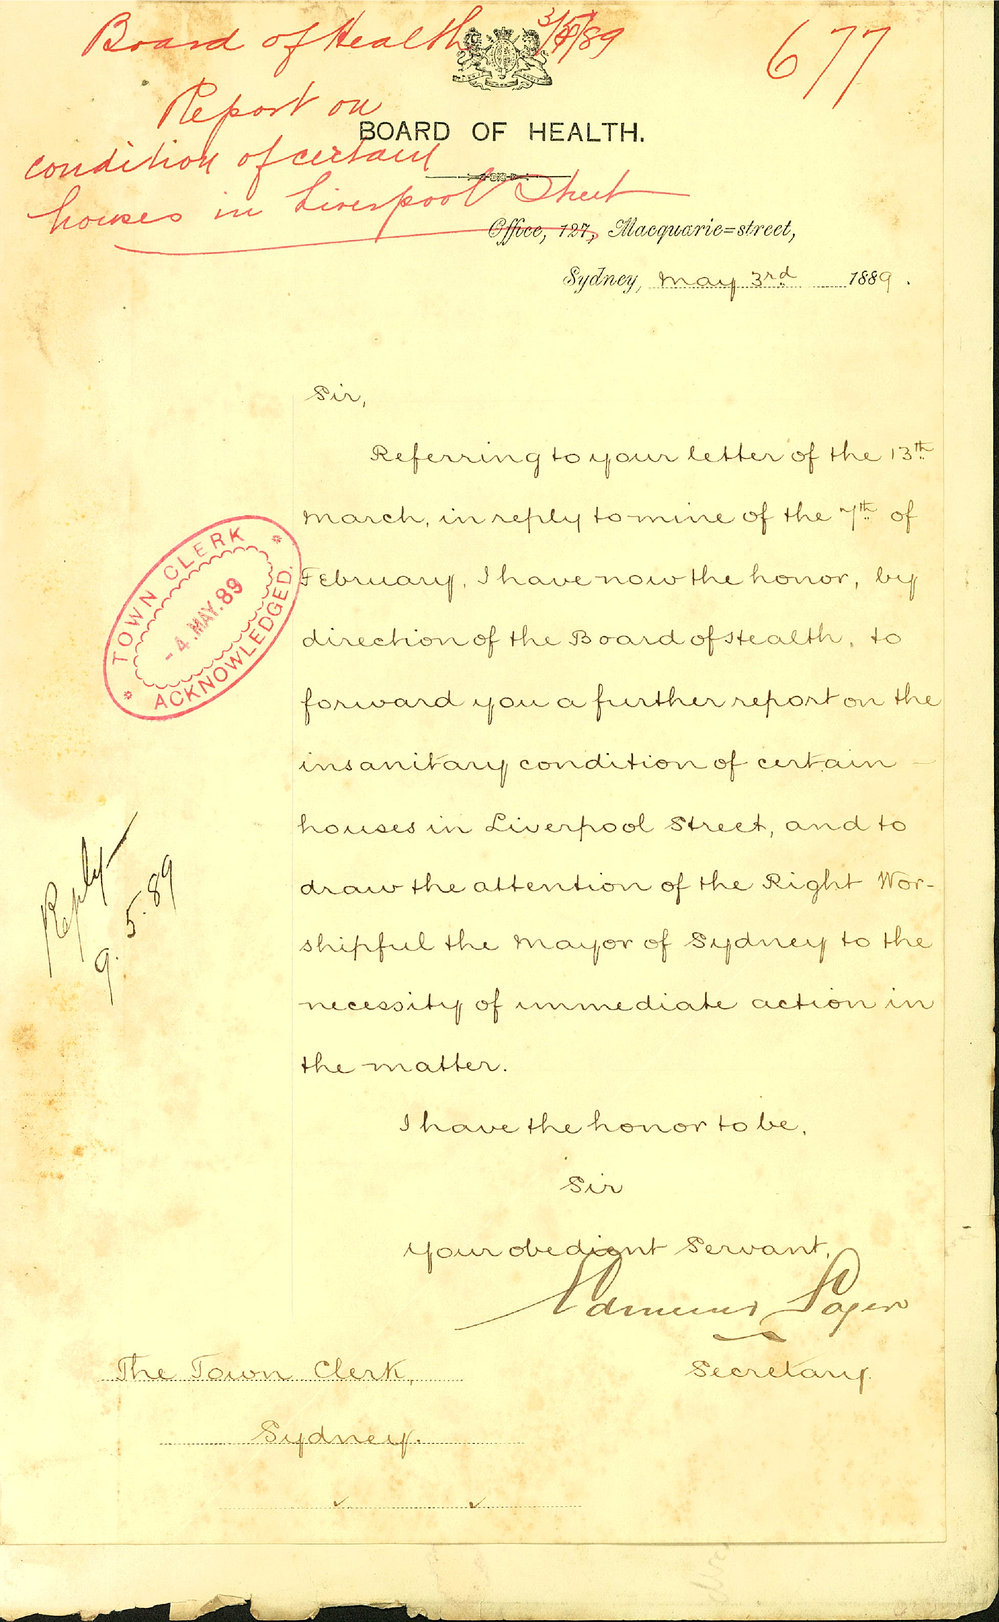 Board of Health 3/5/89
677
Report on
condition of certain
houses in Liverpool Street
BOARD OF HEALTH.
Office, 127, Macquarie=street,
Sydney, May 3rd 1889.
Sir,
Referring to your letter of the 13th
March, in reply to mine of the 7th of
February, I have now the honor, by
direction of the Board of Health, to
forward you a further report on the
insanitary condition of certain
houses in Liverpool Street, and to
draw the attention of the Right Wor-
shipful the Mayor of Sydney to the
necessity of immediate action in
the matter.
I have the honor to be,
Sir
Your obedient Servant,
Edmund Sager
Secretary.
The Town Clerk,
Sydney.
TOWN CLERK
- 4. MAY. 89
ACKNOWLEDGED.
Reply
9.5.89